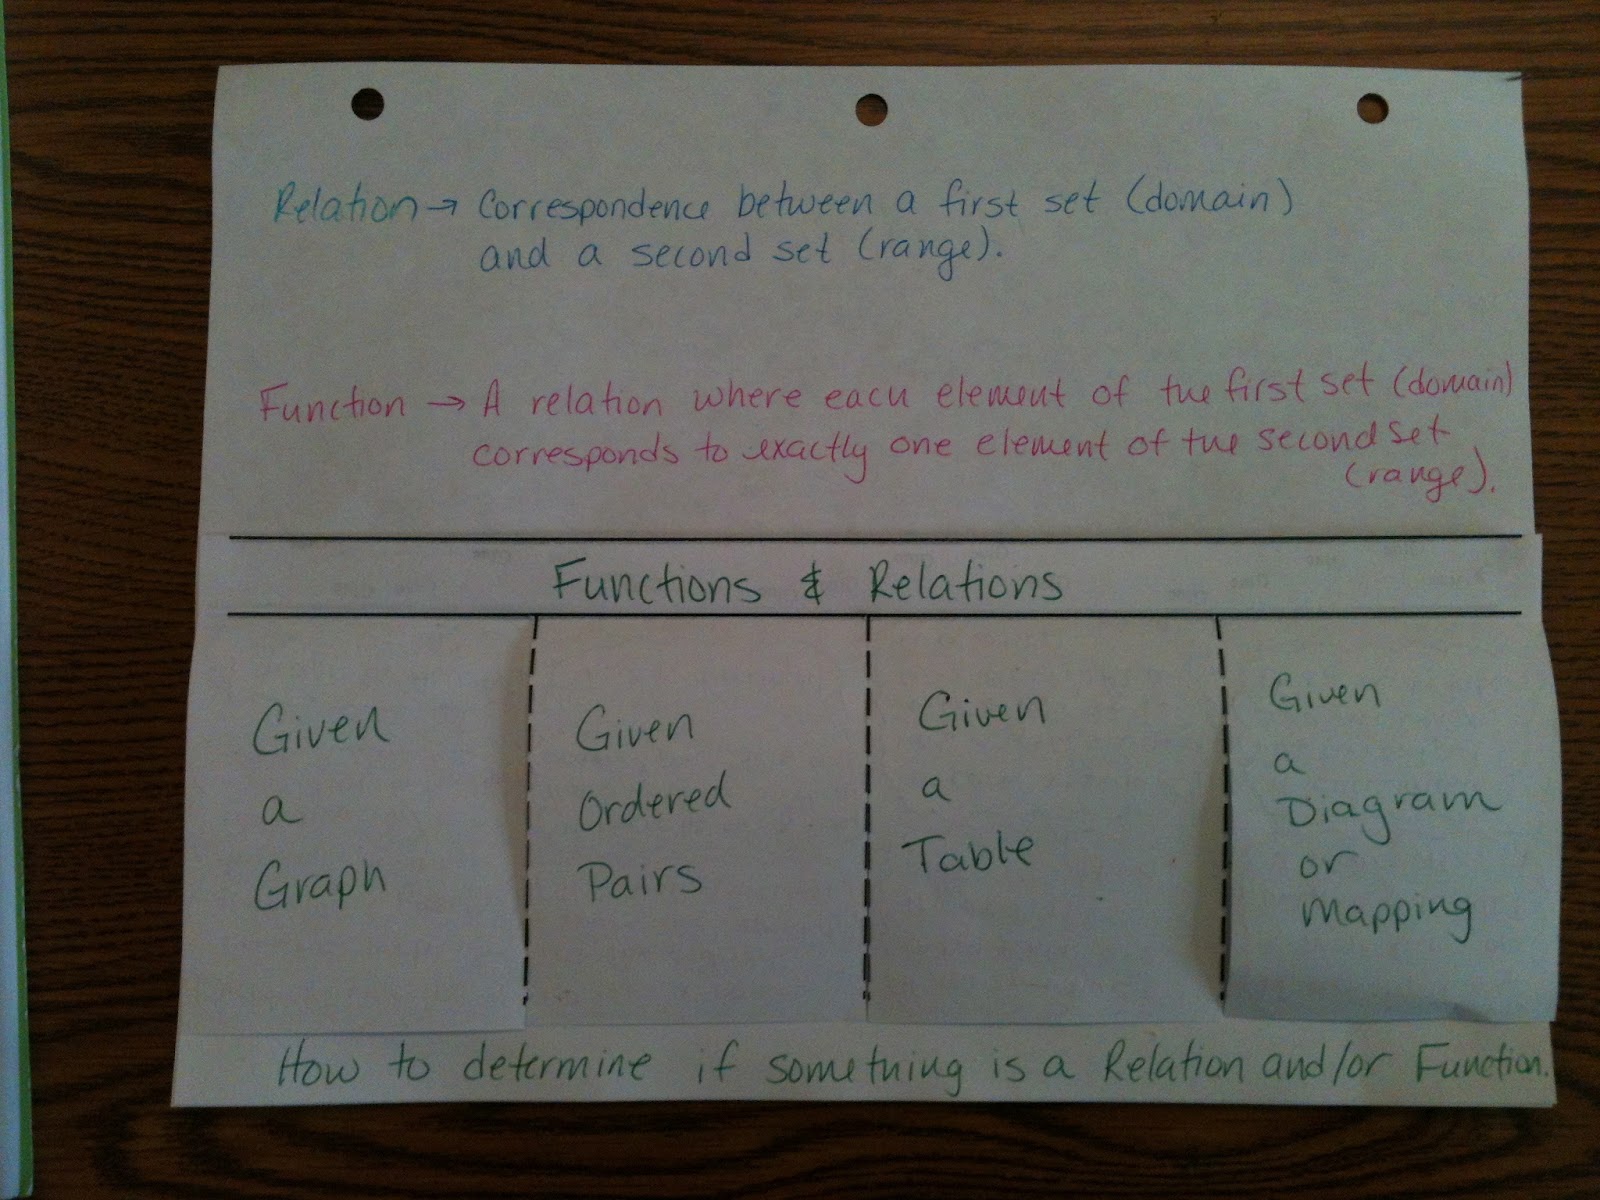 Relation → Correspondence between a first set (domain)
and a second set (range).
Function → A relation where each element of the first set (domain)
corresponds to exactly one element of the second set
(range).
Functions & Relations
Given
a
Graph
Given
Ordered
Pairs
Given
a
Table
Given
a
Diagram
or
Mapping
How to determine if something is a Relation and/or Function.